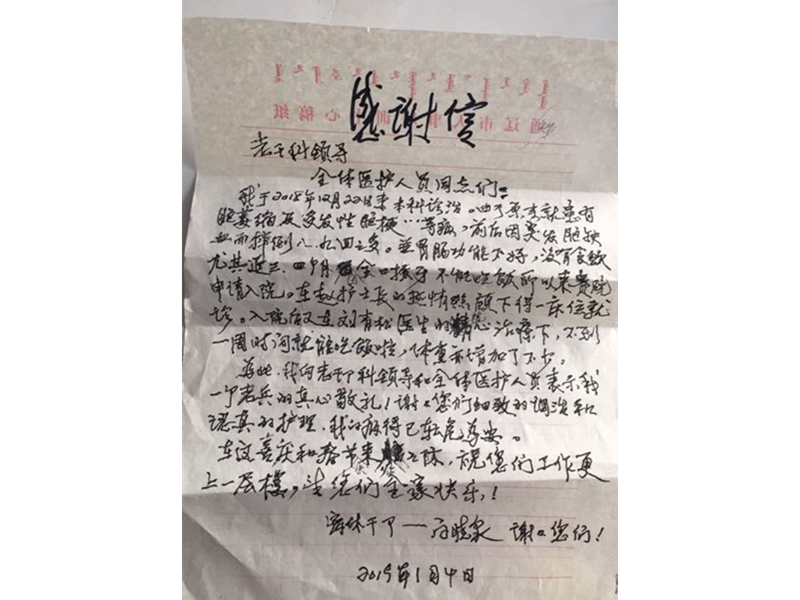 感谢信
老干科领导
全体医护人员同志们:
我于2018年12月22日来本科诊治。由于原来就患有
脑萎缩及多发性脑梗"等病,前后因突发脑缺
血而摔倒八、九回之多。并胃肠功能不好,没有食欲
尤其近三、四个月 全口接牙不能吃饭所以来贵院
申请入院。在赵护士长的热情照顾下得一床位就
诊。入院后又在刘有松医生的精心治疗下,不到
一周时间就能吃饭啦,体重亦增加了不少。
为此,我向老干科领导和全体医护人员表示我
一个老兵的真心敬礼!谢谢您们细致的调治和
认真的护理,我的病得已转危为安。
在这喜庆和春节来 之际,祝您们工作更
上一层楼,并您们全家快乐!
离休干下一 晓泉 谢谢您们!
2019年1月4日